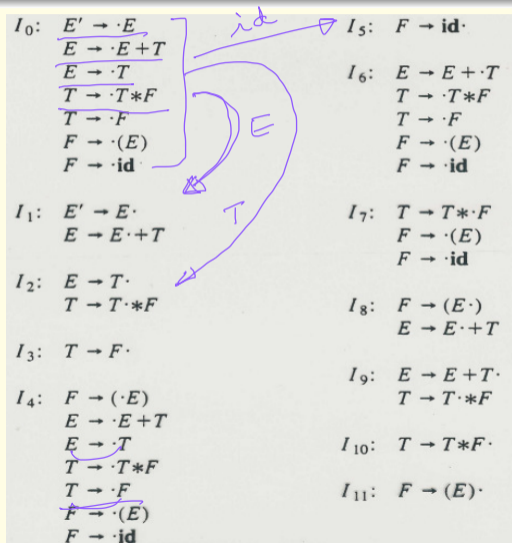 I₀: E' → ·E
E → ·E+T
E → ·T
T → ·T*F
T → ·F
F → ·(E)
F → ·id
I₁: E' → E·
E → E·+T
I₂: E → T·
T → T·*F
I₃: T → F·
I₄: F → (·E)
E → ·E+T
E → ·T
T → ·T*F
T → ·F
F → ·(E)
F → ·id
id
E
T
I₅: F → id·
I₆: E → E+·T
T → ·T*F
T → ·F
F → ·(E)
F → ·id
I₇: T → T*·F
F → ·(E)
F → ·id
I₈: F → (E·)
E → E·+T
I₉: E → E+T·
T → T·*F
I₁₀: T → T*F·
I₁₁: F → (E)·